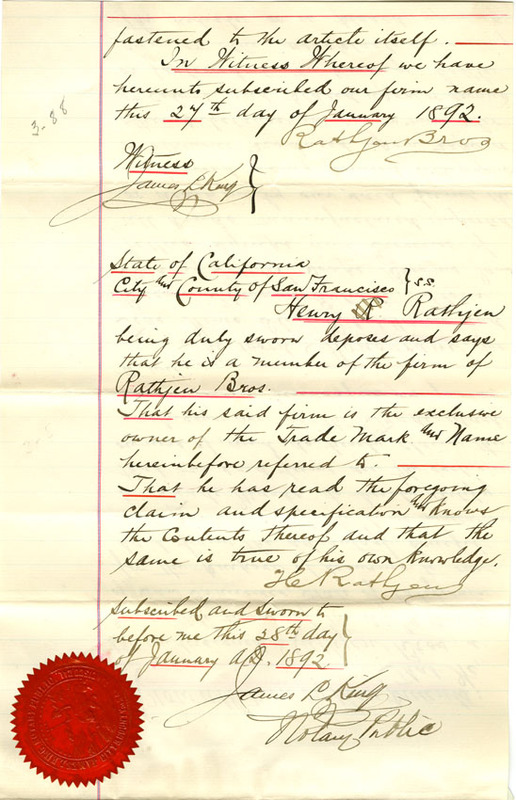 fastened to the article itself.
In Witness Whereof we have
hereunto subscribed our firm name
this 27th day of January 1892.
Rathjen Bros
3-88
Witness
James L King
State of California
City and County of San Francisco } s.s.
Henry Rathjen
being duly sworn deposes and says
that he is a member of the firm of
Rathjen Bros.
That his said firm is the exclusive
owner of the Trade Mark and Name
hereinbefore referred to.
That he has read the foregoing
claim and specification and knows
the Contents thereof and that the
same is true of his own knowledge.
H Rathjen
Subscribed and sworn to
before me this 28th day
of January A.D. 1892
James L King
Notary Public